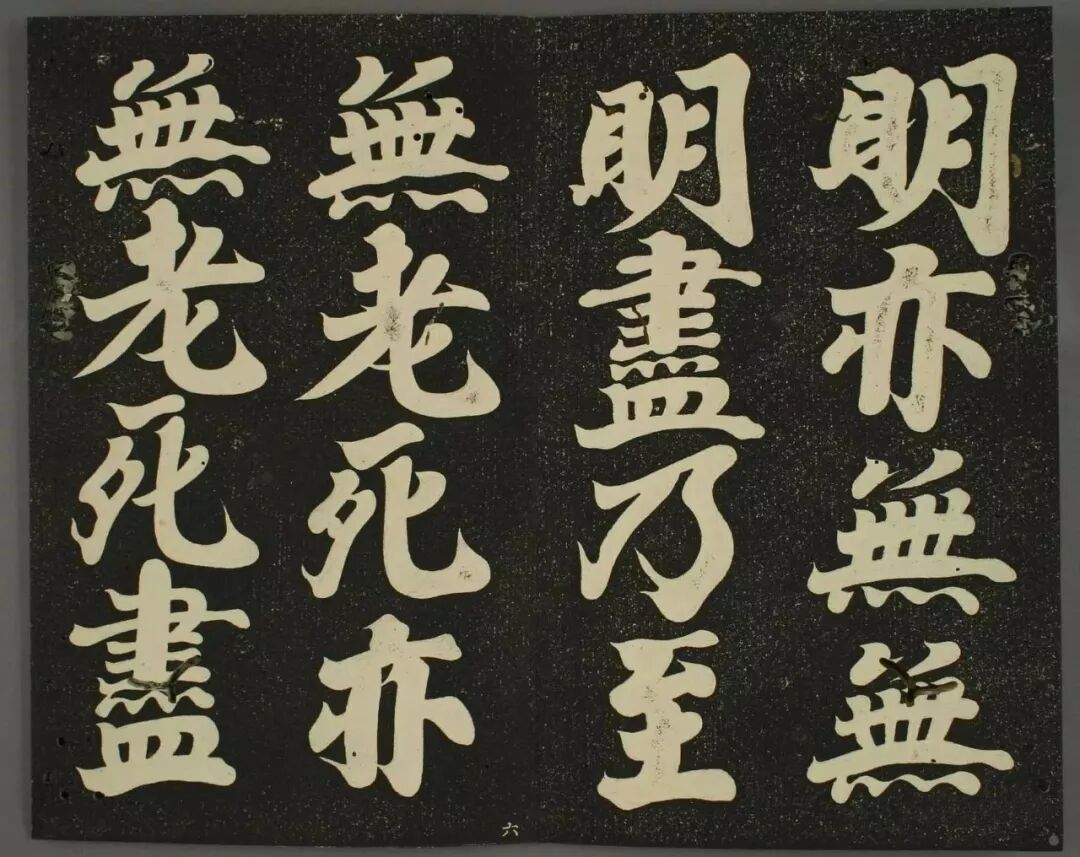 明亦無無
明盡乃至
無老死亦
無老死盡
六